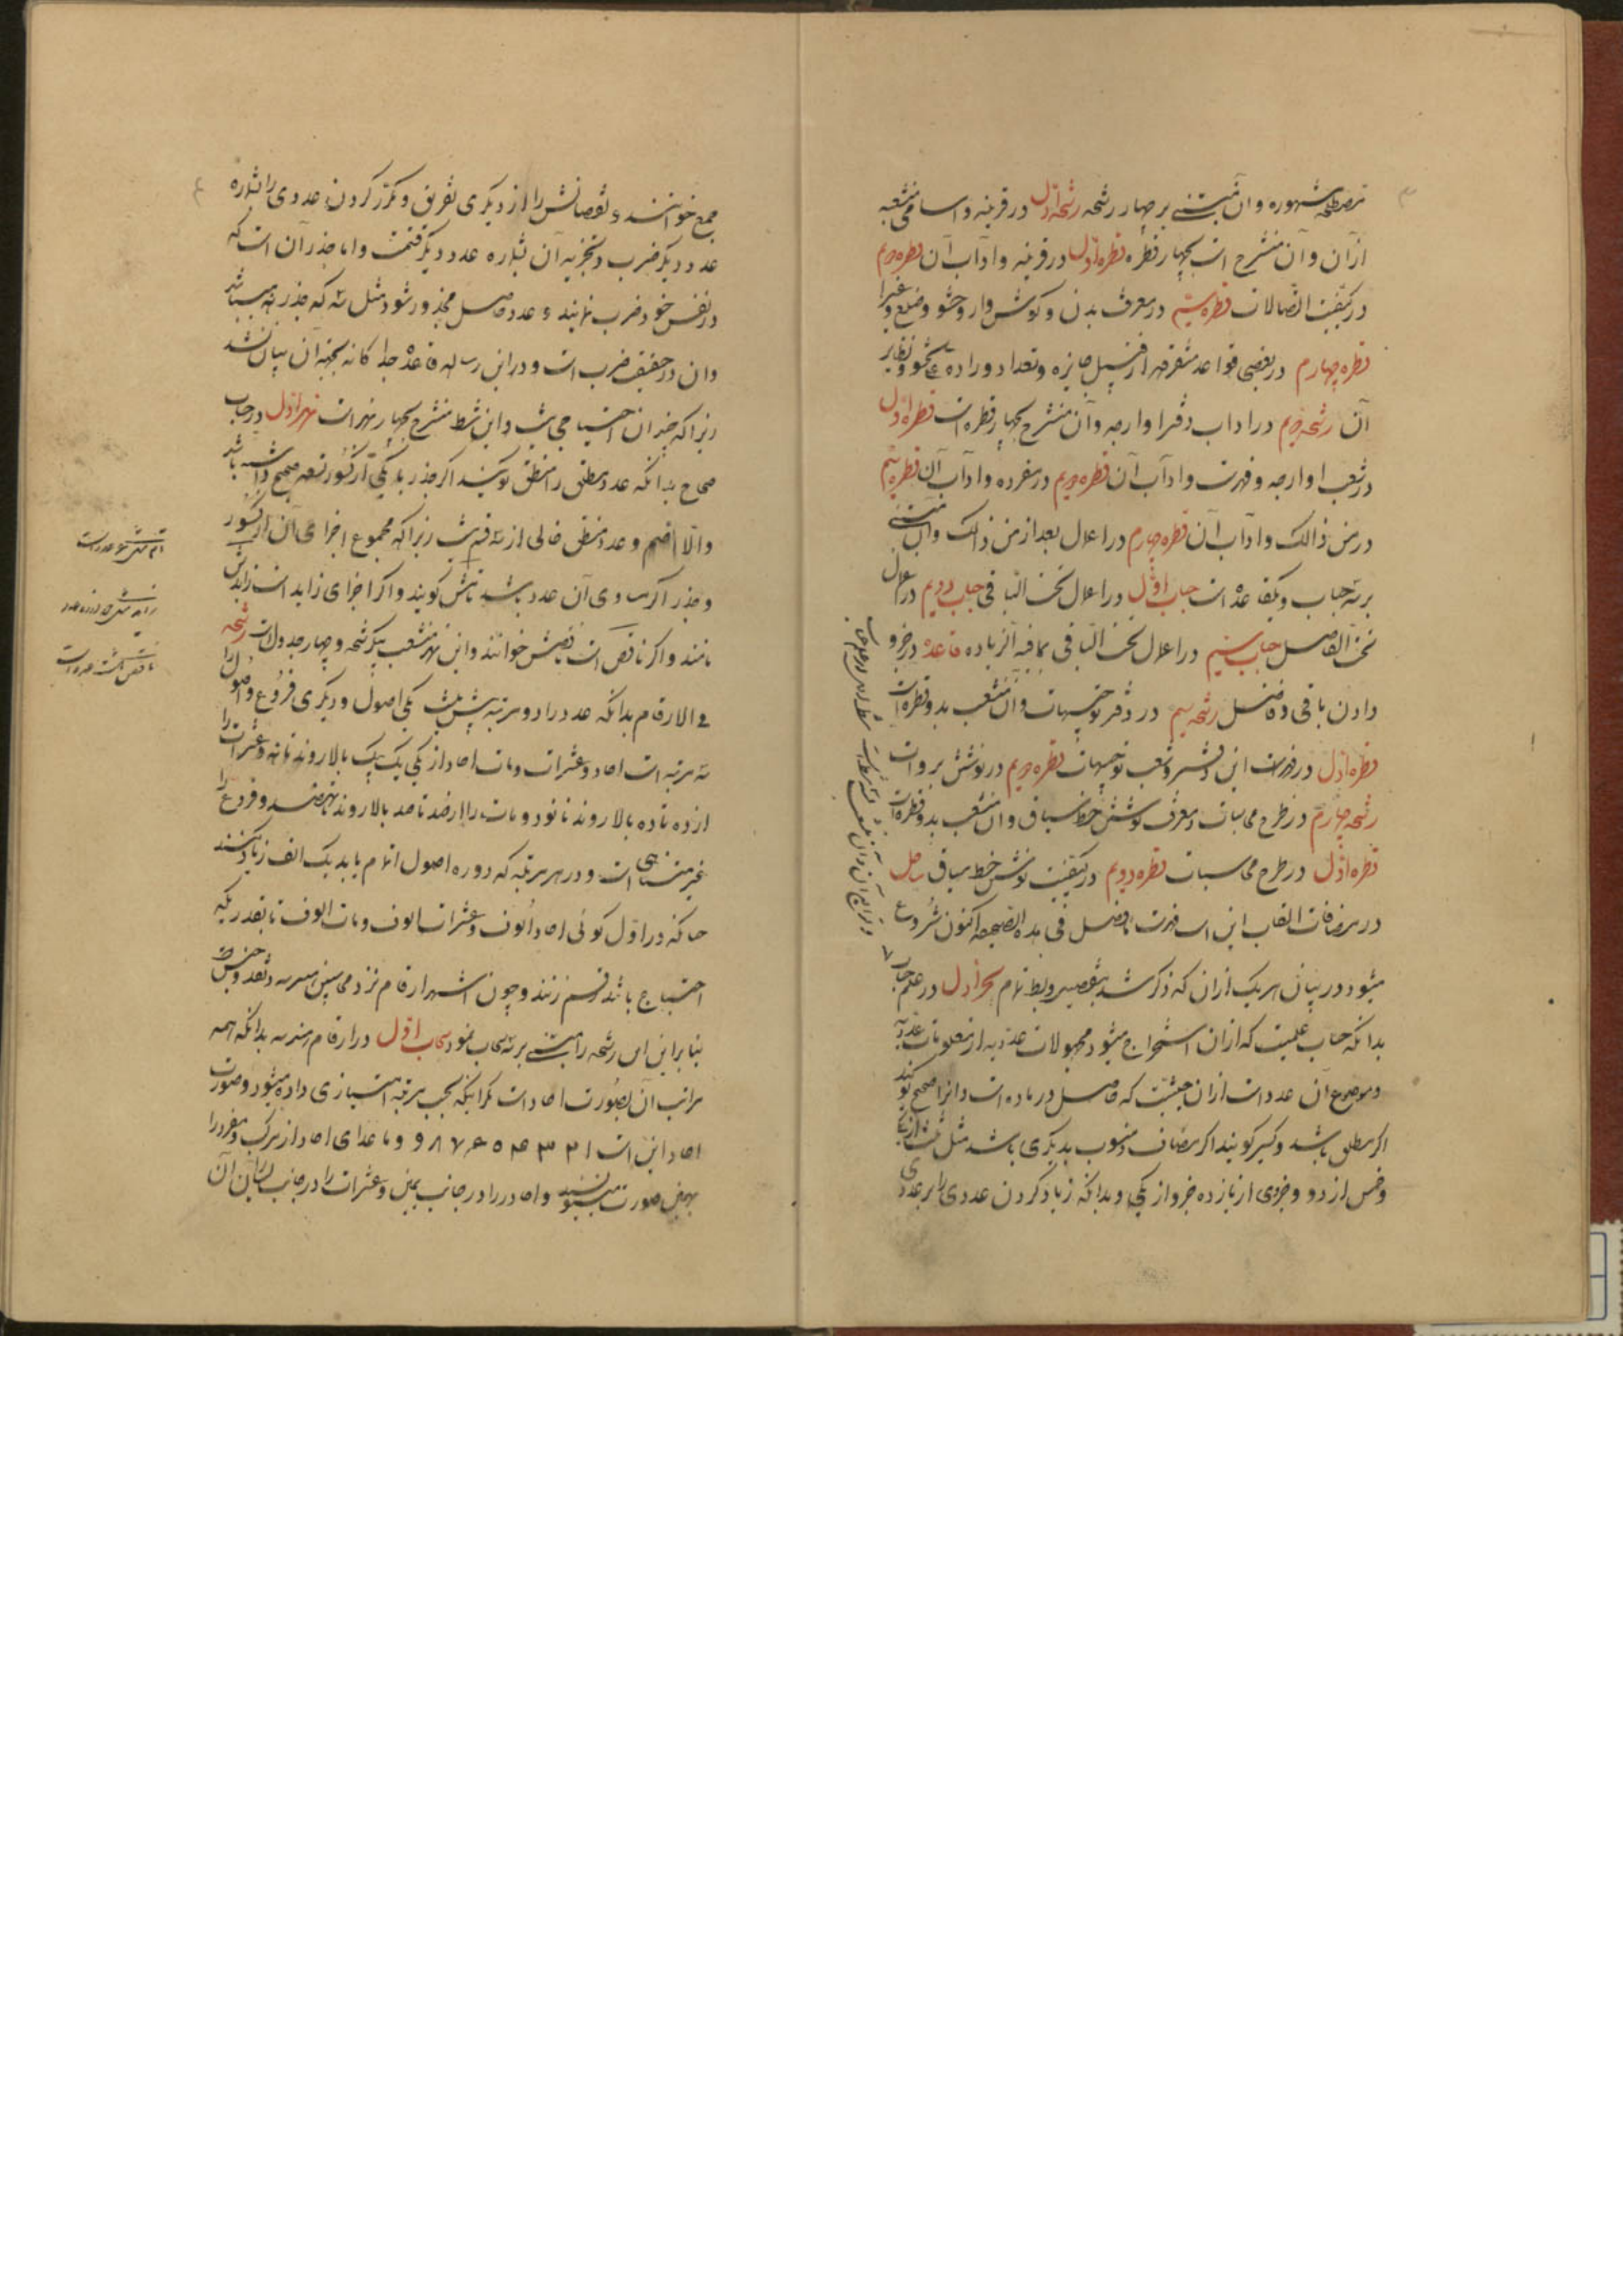 مشهوره وآن مبتنی بر چهار رشحه رشحه اول در قرینه واسامی منشعبه
از آن وآن منشرح است بچهار قطره قطره اول در قرینه وآداب آن قطره دویم
در کیفیت اتصالات قطره سیم در معرفت بدن وکوشوار وحشو وضلع وغیرا
قطره چهارم در بعضی قواعد متفرقه از قبیل جایزه وتعداد
آن رشحه دویم در آداب دفتر اوارجه وآن منشرح بچهار قطره است قطره اول
در شعب اوارجه وفهرست وآداب آن قطره دویم در مفرده وآداب آن قطره سیم
در من ذالک وآداب آن قطره چهارم در اعمال بعد از من ذالک وآن مبتنی
بر سه حساب ویکقاعده است حساب اول در اعمال تحت الباقی حساب دویم در اعمال
تحت الفاصل حساب سیم در اعمال تحت الباقی بمافیه الزیاده قاعده در خرو
دادن باقی وفاضل رشحه سیم در دفتر توجیهات وآن منشعب بدو قطره است
قطره اول در فهرست این دفتر وشعب توجیهات قطره دویم در نوشتن بروات
رشحه چهارم در طرح محاسبات ومعرفت نوشتن خط سیاق وآن منشعب بدو قطره است
قطره اول در طرح محاسبات قطره دویم در کیفیت نوشتن خط سیاق ساحل
در مرضات القاب این است فهرست فی هذه الصحیفه اکنون شروع
میشود در بیان هریک از آن که ذکر شد بتفصیل وبط تمام بحر اول در علم حساب
بدانکه حساب علمیست که از آن استخراج میشود مجهولات عددیه از معلومات عددیه
وموضوع آن عدد است از آن حیثیت که حاصل در ماده است وآنرا صحیح کویند
اکر مطلق باشد وکسر کویند اکر مضاف ومنسوب بدیکری باشد مثل ثلث از یک
وخمس از دو وجزوی از یازده جزو از یکی وبدانکه زیاد کردن عددی را بر عددی
جمع خوانند ونقصانش را از دیکری تفریق ومکرر کردن عددی را بشماره
عدد دیکر ضرب وتجزیه آن بشماره عدد دیکر قسمت واما جذر آن است که
در نفس خود ضرب نمایند وعدد حاصل مجذور شود مثل سه که جذر نه میباشد
وآن در حقیقت ضرب است ودر این رساله قاعده جداکانه بجهة آن بیان نشد
زیراکه چندان احتیاجی نیست واین شط منشرح بچهار نهر است نهر اول در حساب
صحاح بدانکه عدد مطلق را منطق کویند اکر جذر یا یکی از کسور تسعه صحیح داشته باشد
والا اصم وعدد منطق خالی از سه قسم نیست زیراکه مجموع اجزای آن از کسور
وجذر اکر مساوی آن عدد باشد تامش کویند واکر اجزای زاید است زایدش
نامند واکر ناقص است ناقصش خوانند واین نهر منشعب بیکرشحه وچهار جدولست رشحه
فی الارقام بدانکه عدد را دو مرتبه بیش نیست یکی اصول ودیکری فروع واصول را
سه مرتبه است احاد وعشرات ومات احاد از یکی یک یک بالا روند تا نه وعشرات را
از ده تا ده بالا روند تا نود ومات را از صد تا صد بالا روند تا نهصد وفروع را
غیر متناهی است ودر هر مرتبه که دوره اصول اتمام یابد یک الف زیاد کنند
چنانکه در اول کوئی احاد الوف وعشرات الوف ومات الوف تا بقدریکه
احتیاج باشد قسم زنند وچون اشهر ارقام نزد محاسبین
بنابراین این رشحه را مبتنی بر سه سحاب نمود سحاب اول در ارقام هندسه بدانکه همه
مراتب آن بصورت احاد است مکر اینکه بحسب مرتبه امتیازی داده میشود وصورت
احاد این است ۱ ۲ ۳ ۴ ۵ ۶ ۷ ۸ ۹ وماعدای احاد از مرکب ومفرد را
بهمین صورت مینویسند واحاد را در جانب یمین وعشرات را در جانب یسار آن